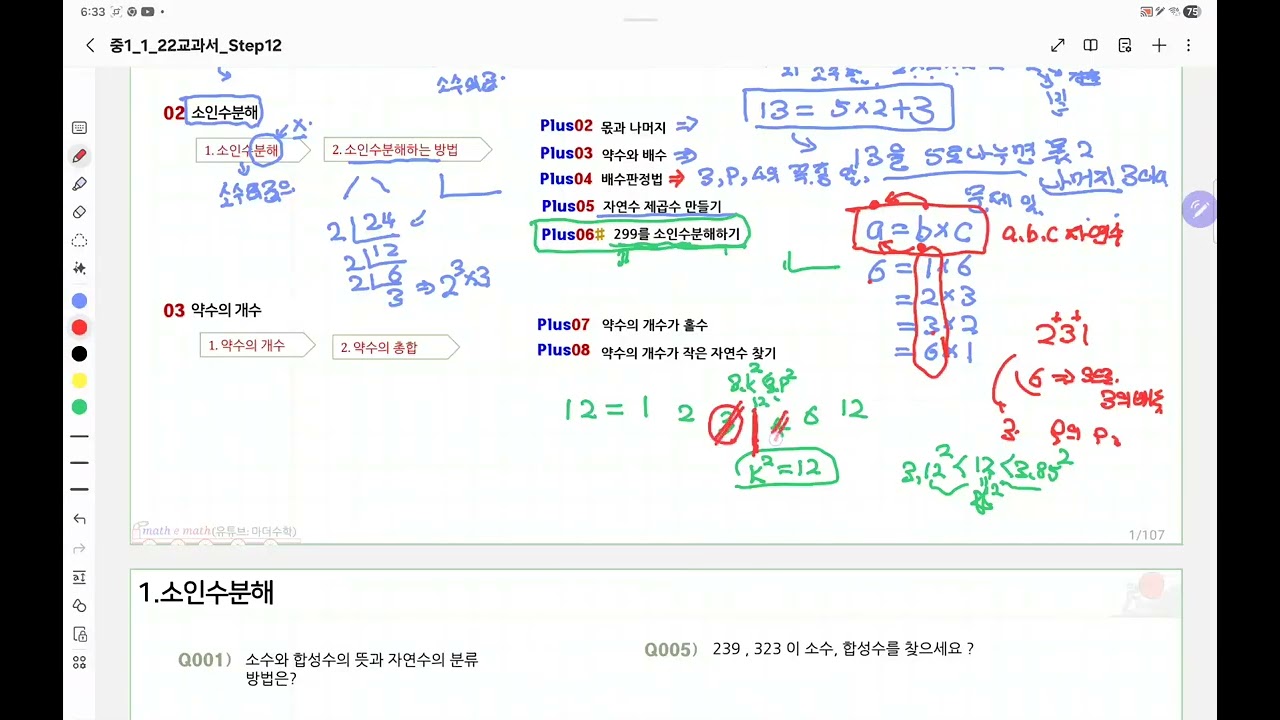 6:33
75
중1_1_22교과서_Step12
소수의곱
13 = 5×2+3
13을 5로 나누면 몫 2
나머지 3이다
02 소인수분해
x.
1. 소인수분해
2. 소인수분해하는 방법
2 24
2 12
2 6
3 ⇒ 2³×3
Plus02 몫과 나머지 ⇒
Plus03 약수와 배수 ⇒
Plus04 배수판정법 ⇒
Plus05 자연수 제곱수 만들기
Plus06# 299를 소인수분해하기
a = b×c
a.b.c 자연수
6 = 1×6
= 2×3
= 3×2
= 6×1
03 약수의 개수
1. 약수의 개수
2. 약수의 총합
Plus07 약수의 개수가 홀수
Plus08 약수의 개수가 작은 자연수 찾기
231
6 ⇒
3의 배수
3.
12 = 1 2 3 4 6 12
k²=12
math e math(유튜브: 마더수학)
1/107
1.소인수분해
Q001) 소수와 합성수의 뜻과 자연수의 분류
방법은?
Q005) 239 , 323 이 소수, 합성수를 찾으세요 ?